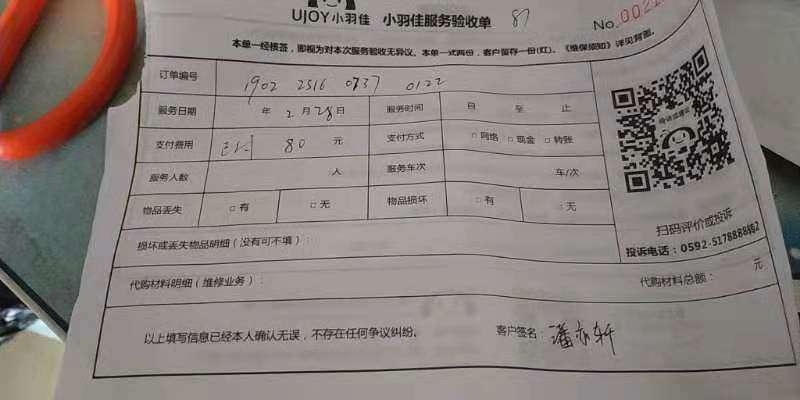 UJOY小羽佳 小羽佳服务验收单 87
No.002
本单一经核签，即视为对本次服务验收无异议。本单一式两份，客户留存一份(红)。《维保须知》详见背面。
订单编号 1902 2516 0737 0122
服务日期 年 2 月 28 日 服务时间 自 至 止
支付费用 80 元 支付方式 □网络 □现金 □转账
服务人数 人 服务车次 车/次
物品丢失 □有 □无 物品损坏 □有 □无
扫码评价或投诉
投诉电话：0592-5178888转2
损坏或丢失物品明细（没有可不填）：
代购材料明细（维修业务）： 代购材料总额： 元
以上填写信息已经本人确认无误，不存在任何争议纠纷。 客户签名：潘亦轩